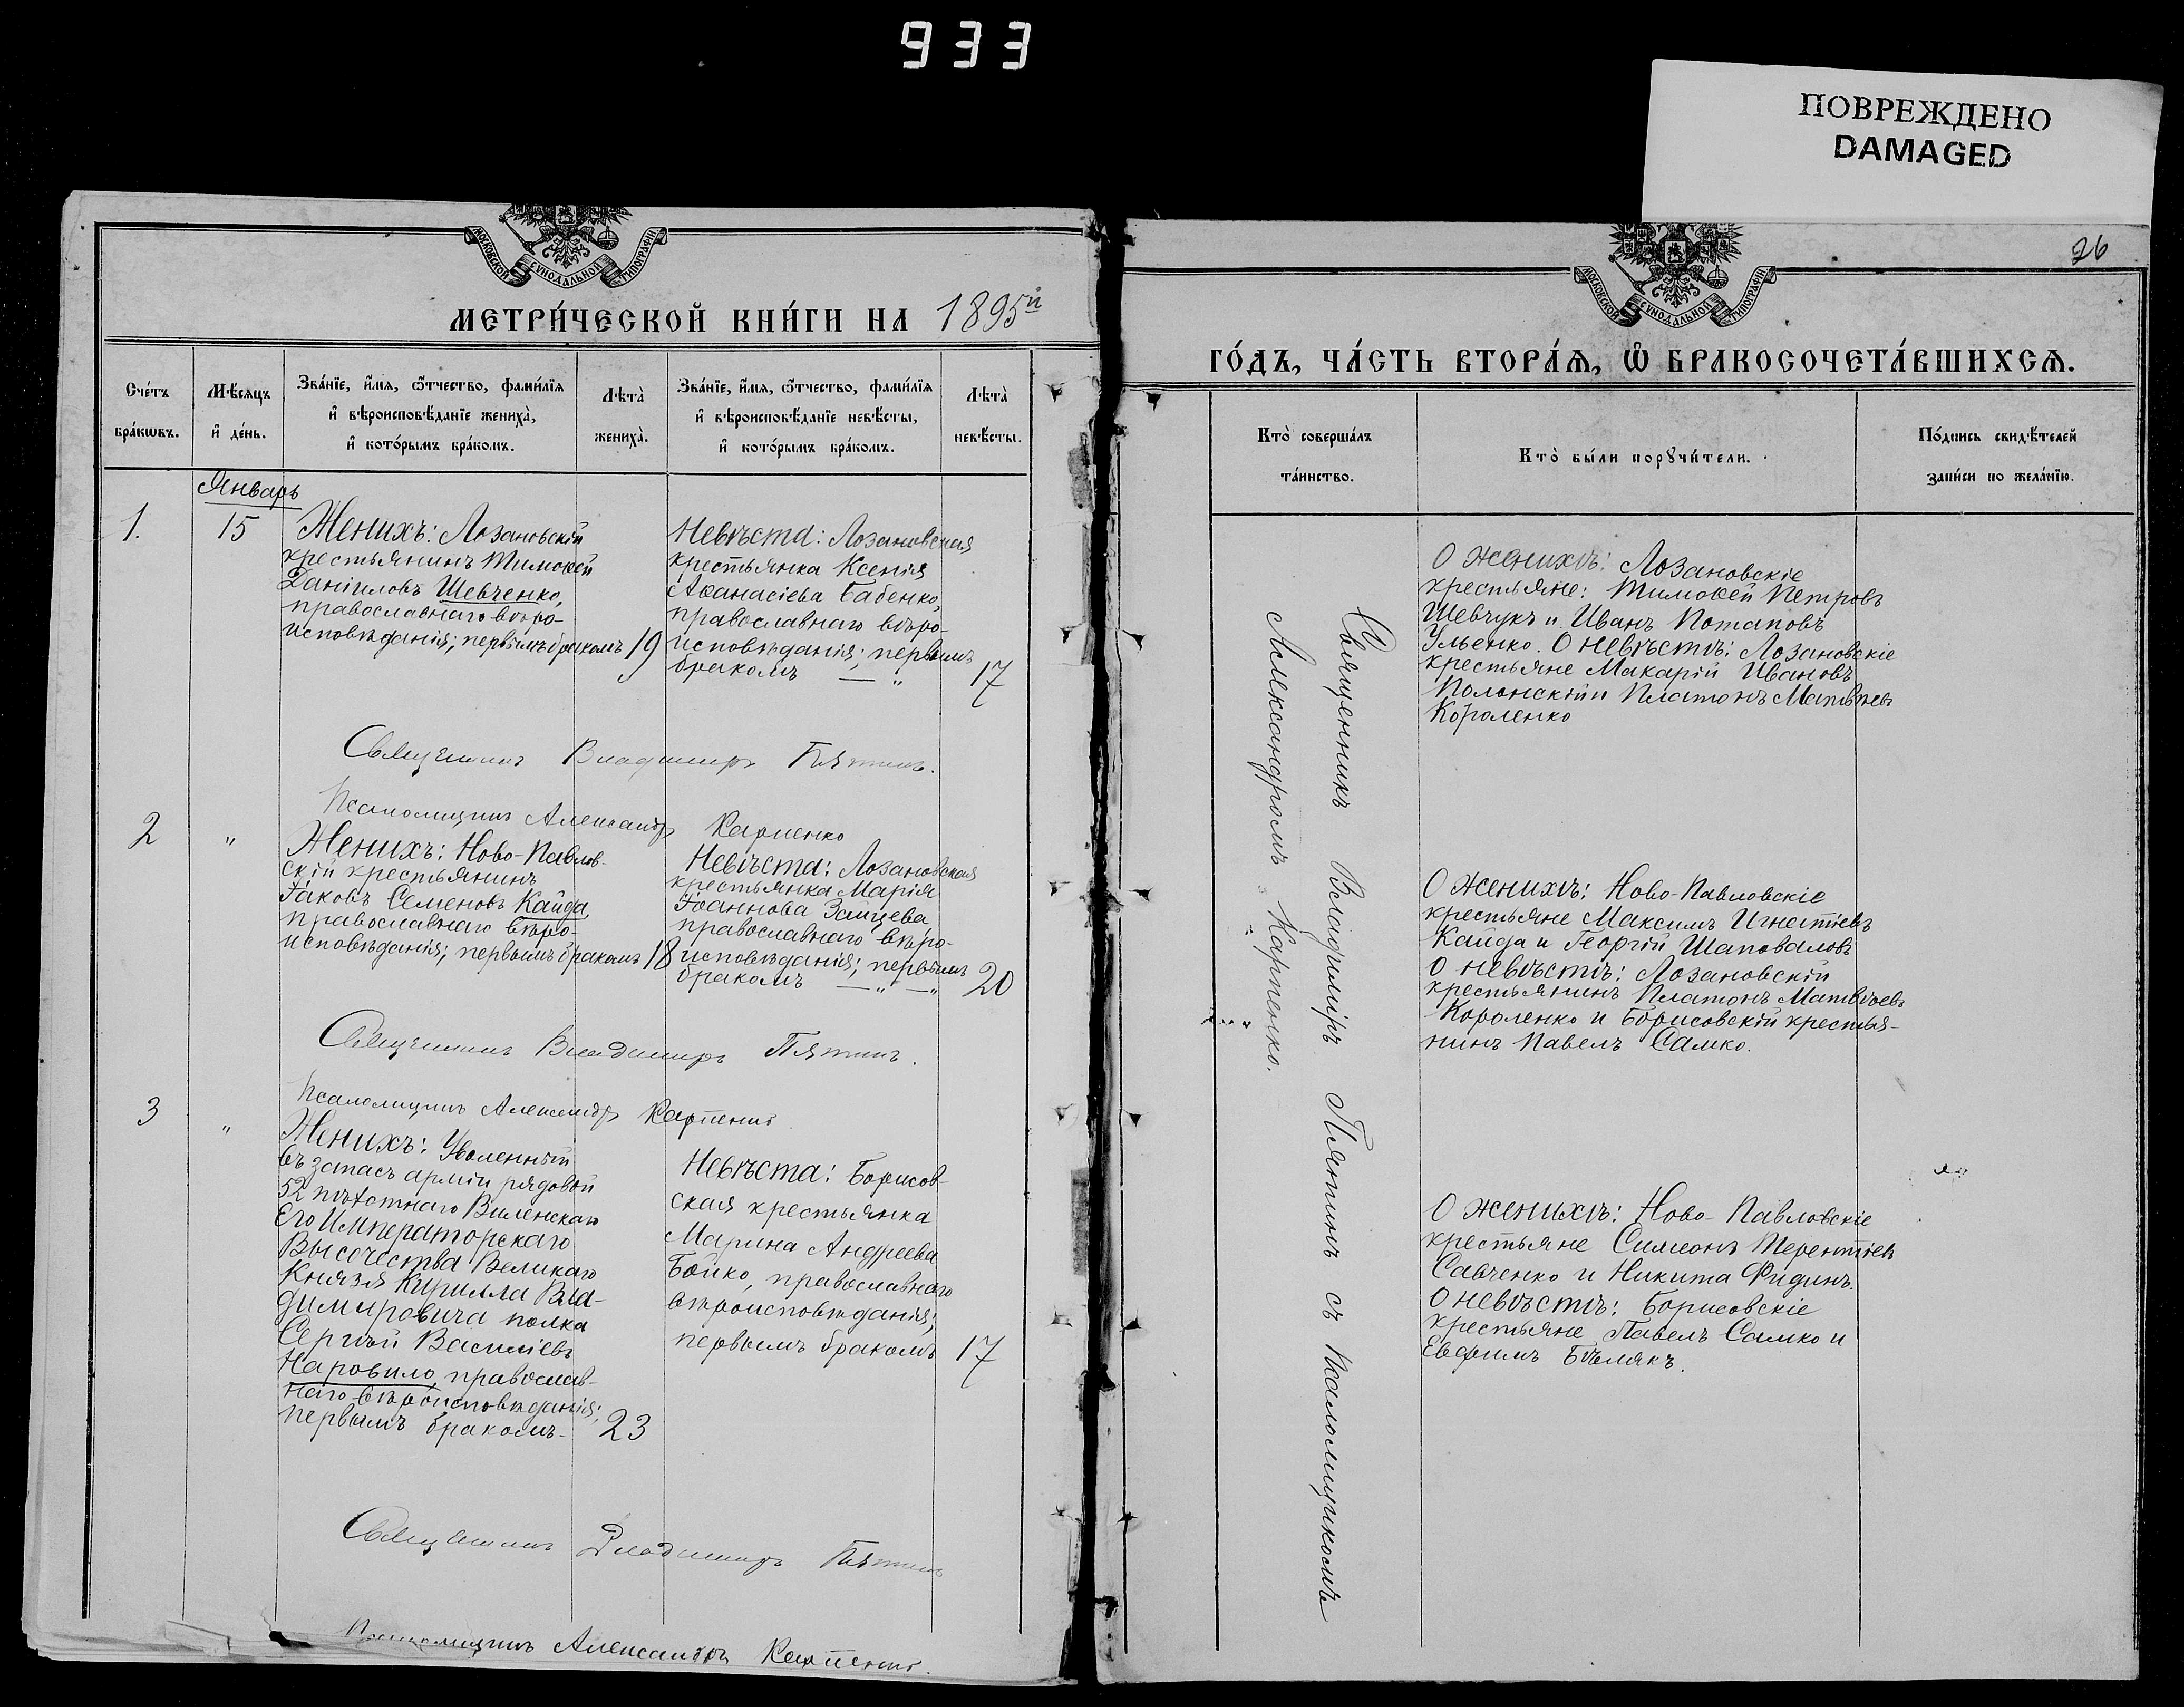 933
ПОВРЕЖДЕНО
DAMAGED
26
МОСКОВСКОЙ СѴНОДАЛЬНОЙ ТИПОГРАФІИ
МЕТРИ́ЧЕСКОЙ КНИ́ГИ НА 1895й
Сче́тъ бра́кѡвъ.
Мѣ́сяцъ и҆ де́нь.
Зва́нїе, и҆́мѧ, ѻ҆́тчество, фами́лїѧ и҆ вѣроисповѣ́данїе женихà, и҆ кото́рымъ бра́комъ.
Лѣтà женихà.
Зва́нїе, и҆́мѧ, ѻ҆́тчество, фами́лїѧ и҆ вѣроисповѣ́данїе невѣ́сты, и҆ кото́рымъ бра́комъ.
Лѣтà невѣ́сты.
Январь
1.
15
Женихъ: Лозановскій
крестьянинъ Тимоѳей
Даніиловъ Шевченко,
православнаго вѣро-
исповѣданія; первымъ бракомъ 19
Невѣста: Лозановская
крестьянка Ксенія
Аѳанасіева Бабенко,
православнаго вѣро-
исповѣданія; первымъ
бракомъ — „ 17
Священникъ Владимиръ Пятинъ.
Псаломщикъ Александръ Карпенко
2
„
Женихъ: Ново-Павлов-
скій крестьянинъ
Іаковъ Семеновъ Кайда,
православнаго вѣро-
исповѣданія; первымъ бракомъ 18
Невѣста: Лозановская
крестьянка Марія
Іоаннова Зайцева,
православнаго вѣро-
исповѣданія; первымъ
бракомъ — „ — „ 20
Священникъ Владимиръ Пятинъ.
Псаломщикъ Александръ Карпенко
3
„
Женихъ: Уволенный
въ запасъ арміи рядовой
52 пѣхотнаго Виленскаго
Его Императорскаго
Высочества Великаго
Князя Кирилла Вла-
димировича полка
Сергѣй Василіевъ
Наровило, православ-
наго вѣроисповѣданія;
первымъ бракомъ- 23
Невѣста: Борисов-
ская крестьянка
Марина Андреева
Бойко, православнаго
вѣроисповѣданія;
первымъ бракомъ 17
Священникъ Владимиръ Пятинъ
Псаломщикъ Александръ Карпенко.
МОСКОВСКОЙ СѴНОДАЛЬНОЙ ТИПОГРАФІИ
ГО́ДЪ, ЧА́СТЬ ВТОРА́Ѧ, Ѡ҆ БРАКОСОЧЕТА́ВШИХСѦ.
Ктò соверша́лъ та́инство.
Ктò бы́ли порꙋчи́тели.
По́дпись свидѣ́телей за́писи по жела́нїю.
Священникъ Владиміръ Пятинъ съ псаломщикомъ
Александромъ Карпенко.
О женихѣ: Лозановскіе
крестьяне: Тимоѳей Петровъ
Шевчукъ и Иванъ Потаповъ
Ульенко. О невѣстѣ: Лозановскіе
крестьяне Макарій Ивановъ
Полонскій и Платонъ Матвѣевъ
Короленко
О женихѣ: Ново-Павловскіе
крестьяне Максимъ Игнатіевъ
Кайда и Георгій Шаповаловъ
О невѣстѣ: Лозановскій
крестьянинъ Платонъ Матвѣевъ
Короленко и Борисовскій крестья-
нинъ Павелъ Самко.
О женихѣ: Ново-Павловскіе
крестьяне Симеонъ Терентіевъ
Савченко и Никита Фидинъ.
О невѣстѣ: Борисовскіе
крестьяне Павелъ Самко и
Евфимъ Бѣлякъ.